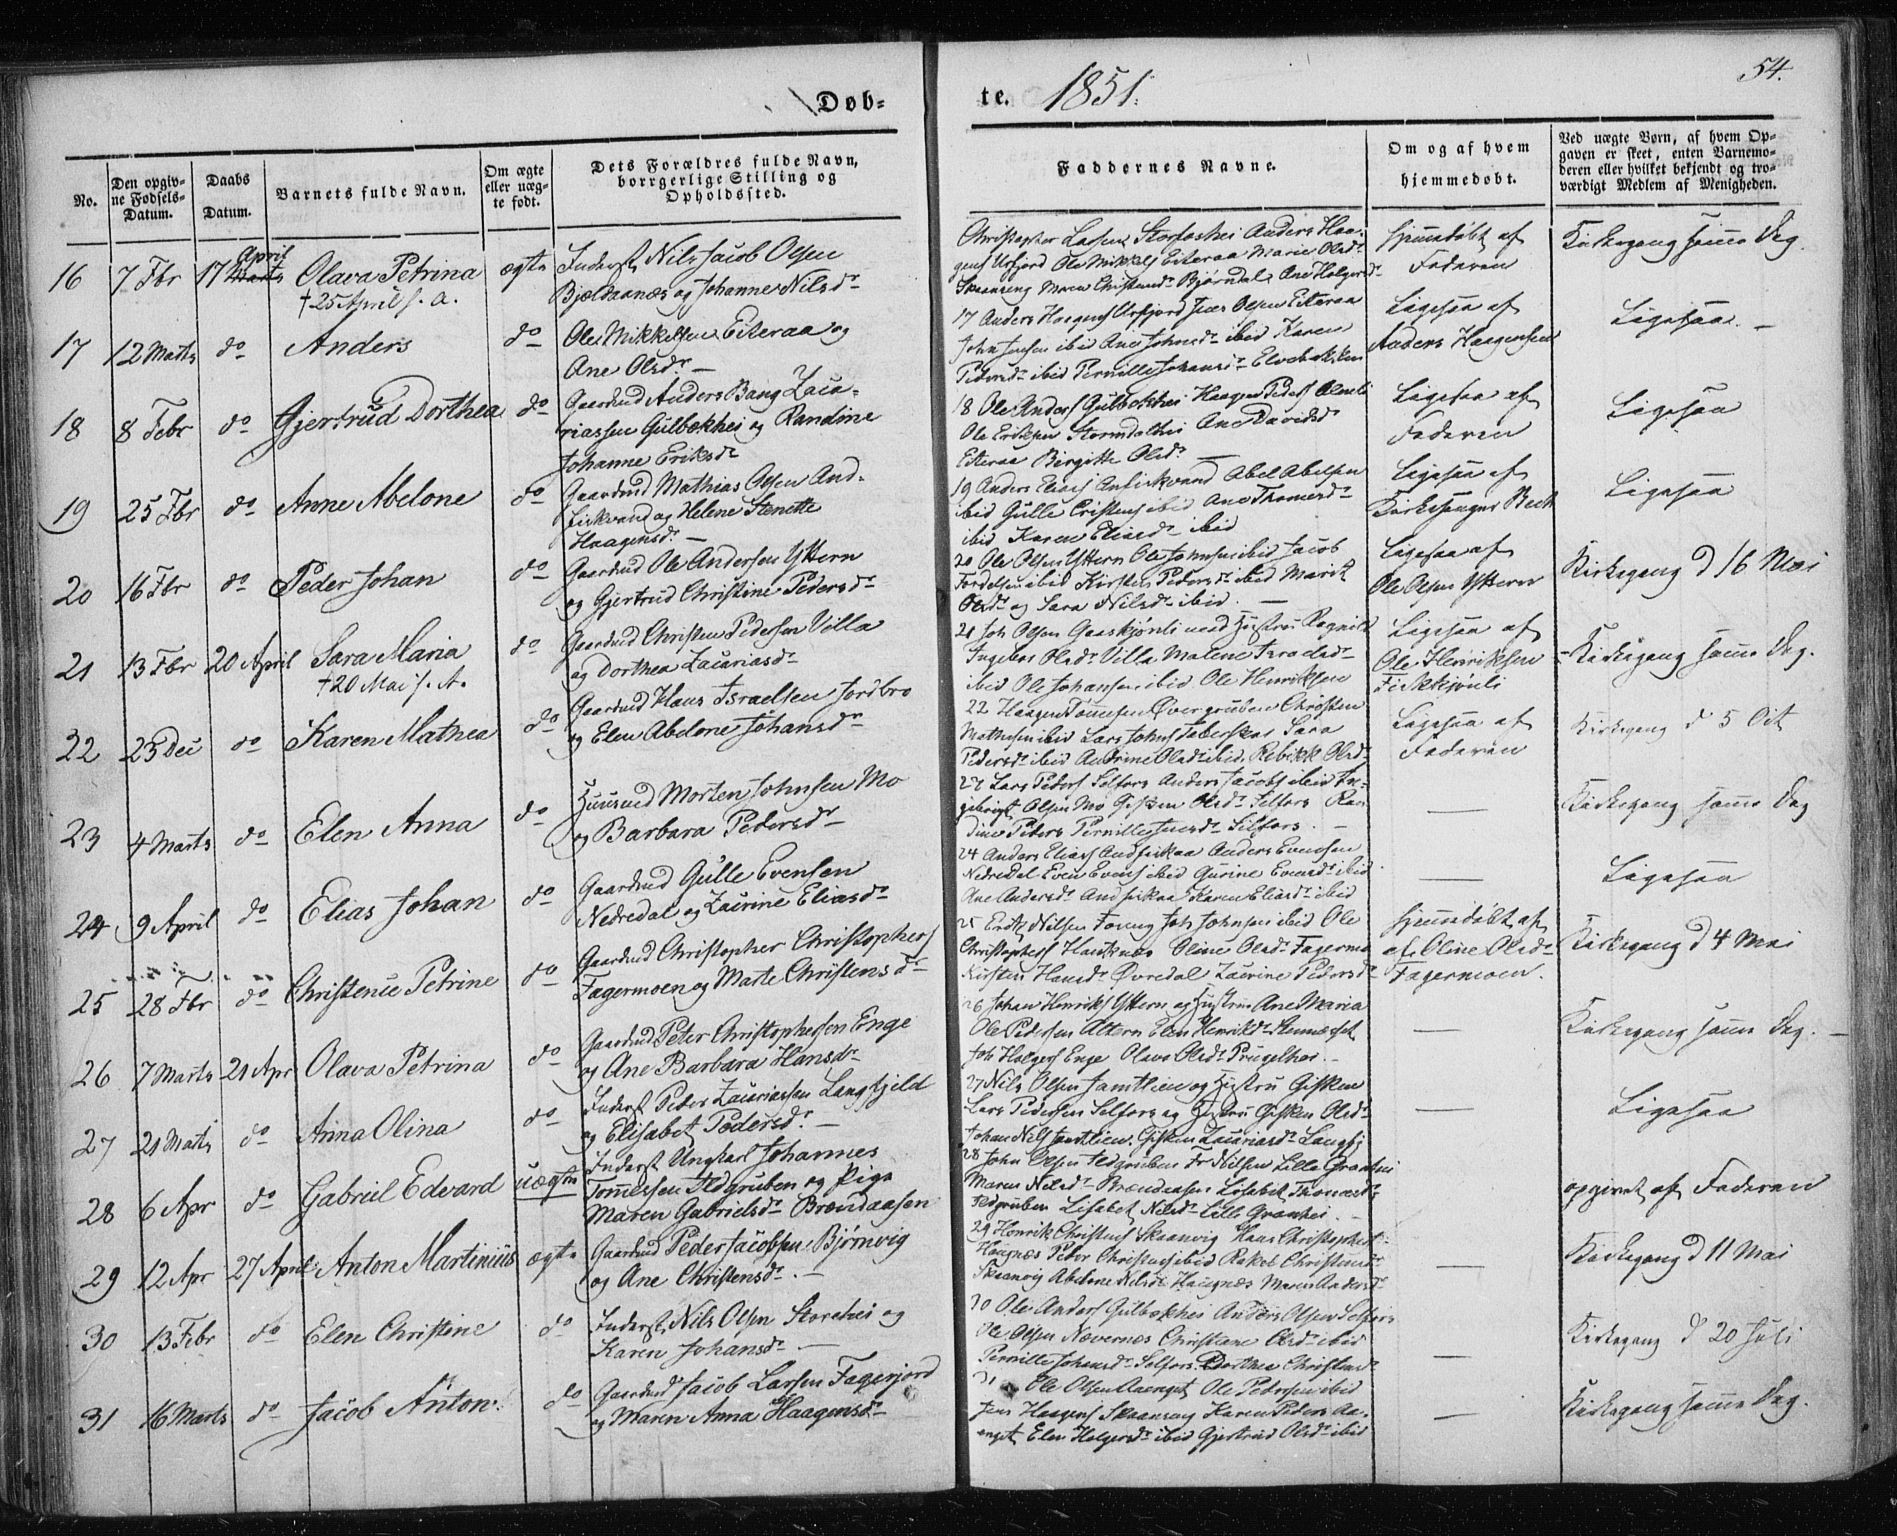 Døb-
te. 1851. 54.
No.
Den opgiv-
ne Fødsels-
Datum.
Daabs
Datum.
Barnets fulde Navn.
Om ægte
eller uæg-
te født.
Dets Forældres fulde Navn,
borrgerlige Stilling og
Opholdssted.
Faddernes Navne.
Om og af hvem
hjemmedøbt.
Ved uægte Børn, af hvem Op-
gaven er skeet, enten Barnemo-
deren eller hvilket bekjendt og tro-
værdigt Medlem af Menigheden.
16 7 Fbr 17 April Olava Petrina ægte Inderst Nils Jacob Olsen
†25 April s. a. Bjeldaanæs og Johanne Nilsdr
Christopher Larsen Anders Haa-
gens Urfjord Ole Mikkels Eiteraa Marie Olsdr
Skaanseng Maren Bjørndal Ane Holgersdr
Hjemmedøbt af
Faderen
Kirkegang samme Dag.
17 12 Marts do Anders do Ole Mikkelsen Eiteraa og
Ane Olsdr. —
17 Anders Haagens Urfjord Olsen Eiteraa
John Jensen ibid Ane Johnsdr ibid Karen
Pedersdr ibid Pernille Johansdr Elvebakken
Ligesaa af
Anders Haagensen
Ligesaa. —
18 8 Febr do Gjertrud Dorthea do Gaardmd Anders Bang Zaca-
riassen Gulbekhei og Randine
Johanne Eriksdr
18 Ole Anders Gulbekhei Haagen Peders
Ole Eriksen Stormdalhei Ane Davidsdr
Eiteraa Birgitte Olsdr. —
Ligesaa af
Faderen
Ligesaa
19 25 Fbr do Anne Abelone do Gaardmd Mathias Olsen And-
fiskvand og Helene Stenette
Haagensdr —
19 Anders Elias Anfiskvand Abel Abelsen
ibid Gulle Cristens ibid Ane Thomesdr
ibid Karen Eliasdr ibid
Ligesaa af
Kirkesanger Bech
Ligesaa
20 16 Fbr do Peder Johan do Gaardmd Ole Andersen Yttern
og Gjertrud Christine Pedersdr
20 Ole Olsen Yttern Ole Johnsen ibid Jacob
ibid Kirsten Pedersdr ibid Marit
Olsdr og Sara Nilsdr ibid. —
Ligesaa af
Ole Olsen Yttern
Kirkegang d 16 Mai
21 13 Fbr 20 April Sara Maria do Gaardmd Christen Pedersen Villa
†20 Mai s. A. og Dorthea Zacariasdr
21 Joh Olsen Gaaskjønli med Hustru Ragnild
Ingebor Olsdr Villa Malene
ibid Ole Johansen ibid Ole Henriksen
Ligesaa af
Ole Henriksen
Fiskkjønli
Kirkegang samme Dag.
22 25 Dec do Karen Mathea do Gaardmd Hans Israelsen Jordbro
og Elen Abelone Johansdr
22 Haagen Tommesen Øvergruben Christen
Mathisen ibid Lars Johns Taberskar Sara
Pedersdr ibid Andrine Olsdr ibid. Rebekk Olsdr
Ligesaa af
Faderen
Kirkegang d 5 Oct
23 4 Marts do Elen Anna do Huusmd Morten Johnsen Mo
og Barbara Pedersdr
23 Lars Peders Selfors Anders Jacobs ibid In-
gebrigt Olsen Mo Gisken Olsdr Selfors Ran
dine Peders Pernille Selfors. —
—
Kirkegang samme Dag
24 9 April do Elias Johan do Gaardmd Gulle Evensen
Nedredal og Zacrine Eliasdr
24 Anders Elias Andfiskaa Anders Evensen
Nedredal Even Evens ibid Gurine Evensdr ibid
Ane Andersdr Andfiskaa Karen Eliasdr ibid
—
Ligesaa
25 28 Fbr do Christence Petrine do Gaardmd Christopher Christophers
Fagermoen og Marte Christensdr
25 Erik Nilsen Joh Johnsen ibid Ole
Christophers Hauknes Oline Olsdr Fagermo
Kirsten Hansdr Øvredal Zacrine Pedersdr
Hjemmedøbt af
af Oline Olsdr
Fagermoen.
Kirkegang d 4 Mai
26 7 Marts 21 Apr Olava Petrina do Gaardmd Peter Christophersen Enge
og Ane Barbara Hansdr
26 Johan Henriks Yttern og Hustru Ane Maria
Ole Pedersen Altern Elen Henriksdr
Joh Holgers Enge Olava Olsdr Prugelhei. —
—
Kirkegang samme Dag. —
27 21 Marts do Anna Olina do Inderst Peder Zacariasen Langfjeld
og Elisabet Pedersdr. —
27 Nils Olsen Jamtlien og Hustru Gisken
Lars Pedersen Selfors og Hustru Gisken Olsdr
Johan Nils Jamtlien. Gisken Zacariasdr Langfj
—
Ligesaa
28 6 Apr do Gabriel Edvard uægte Inderst Ungkarl Johannes
Tommesen Ildgruben og Pige
Maren Gabrielsdr Brændaasen
28 John Olsen Ildgruben Nilsen Lille Granhei
Maren Nilsdr Brændaasen Lisabet Thomasdr
Ildgruben Lisabet Nilsdr Lille Granhei. —
opgivet af Faderen
29 12 Apr 27 April Anton Martinius ægte Gaardmd Peder Jacobsen Bjørnvig
og Ane Christensdr. —
29 Henrik Christens Skaanvig Hans Christophers
Haugnæs Peter Christens ibid Rakel Christensdr
Skaanvig Abelone Nilsdr Haugnæs Maren Andersdr
—
Kirkegang d 11 Mai
30 13 Febr do Elen Christine do Inderst Nils Olsen Storehei og
Karen Johansdr —
30 Ole Anders Gulbekhei Anders Olsen Selfors
Ole Olsen Nævernæs Christiane Olsdr ibid
Pernille Johansdr Selfors. Dorthea Christensdr
—
Kirkegang d 20 Juli
31 16 Marts do Jacob Anton. do Gaardmd Jacob Larsen Fagerjord
og Maren Anna Haagensdr
31 Ole Olsen Aaenget Ole Pedersen ibid
Jens Haagens Skaanseng Karen Peders Aa-
enget Elen Holgersdr ibid Gjertrud Olsdr ibid
—
Kirkegang samme Dag.